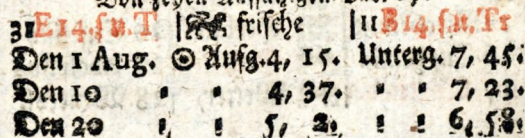 31 E 14. s n. T | frische | 11 B 14. s. n. Tr
Den 1 Aug. ☉ Aufg. 4, 15. Unterg. 7, 45.
Den 10 " " 4, 37. " " 7, 23.
Den 20 " " 5, 2. " " 6, 58.